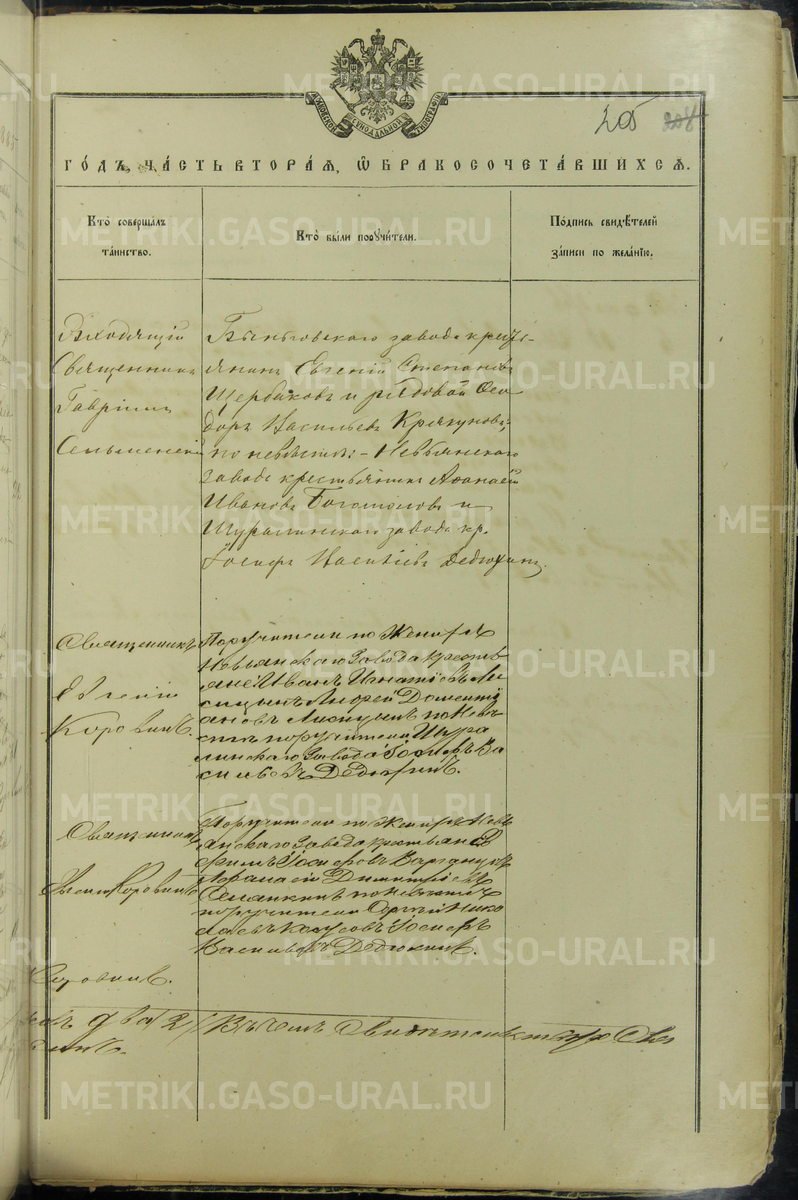 МОСКОВСКОЙ СѴНОДАЛЬНОЙ ТИПОГРАФІИ
205
ГО́ДЪ, ЧА́СТЬ ВТОРА́Я, Ѡ БРАКОСОЧЕТА́ВШИХСЯ.
Кто̀ соверша́лъ
та́инство.
Кто̀ бы́ли порꙋчи́тели.
По́дпись свидѣ́телей
за́писи по жела́нїю.
Входящій
Священникъ
Гавріилъ
Быньговского завода кресть-
янинъ Евгеній Степановъ
Щербаковъ и рядовой Ѳео-
доръ Васильевъ Крягуновъ;
по невѣстѣ - Невьянского
завода крестьянинъ Аѳанасій
Ивановъ Богомоловъ и
Шуралинского завода кр.
Іосифъ Васильевъ Дедюхинъ.
Священникъ
Евгеній
Коровинъ.
Поручители по женихѣ
Невьянскаго Завода кресть
яне Иванъ Игнатіевъ
Андрей Доменті
ановъ по невѣ
стѣ поручители Шура
линскаго Завода Іосифъ Ва
сильевъ Дедюхинъ.
Священникъ
Коровинъ
Поручители по женихѣ Невь
янскаго Завода крестьяне
Іосифовъ
Аѳанасій Димитріевъ
по невѣстѣ
поручители Сергѣй Нико
лаевъ Іосифъ
Васильевъ Дедюхинъ.
Коровинъ.
два 2/
Въ чемъ
METRIKI.GASO-URAL.RU